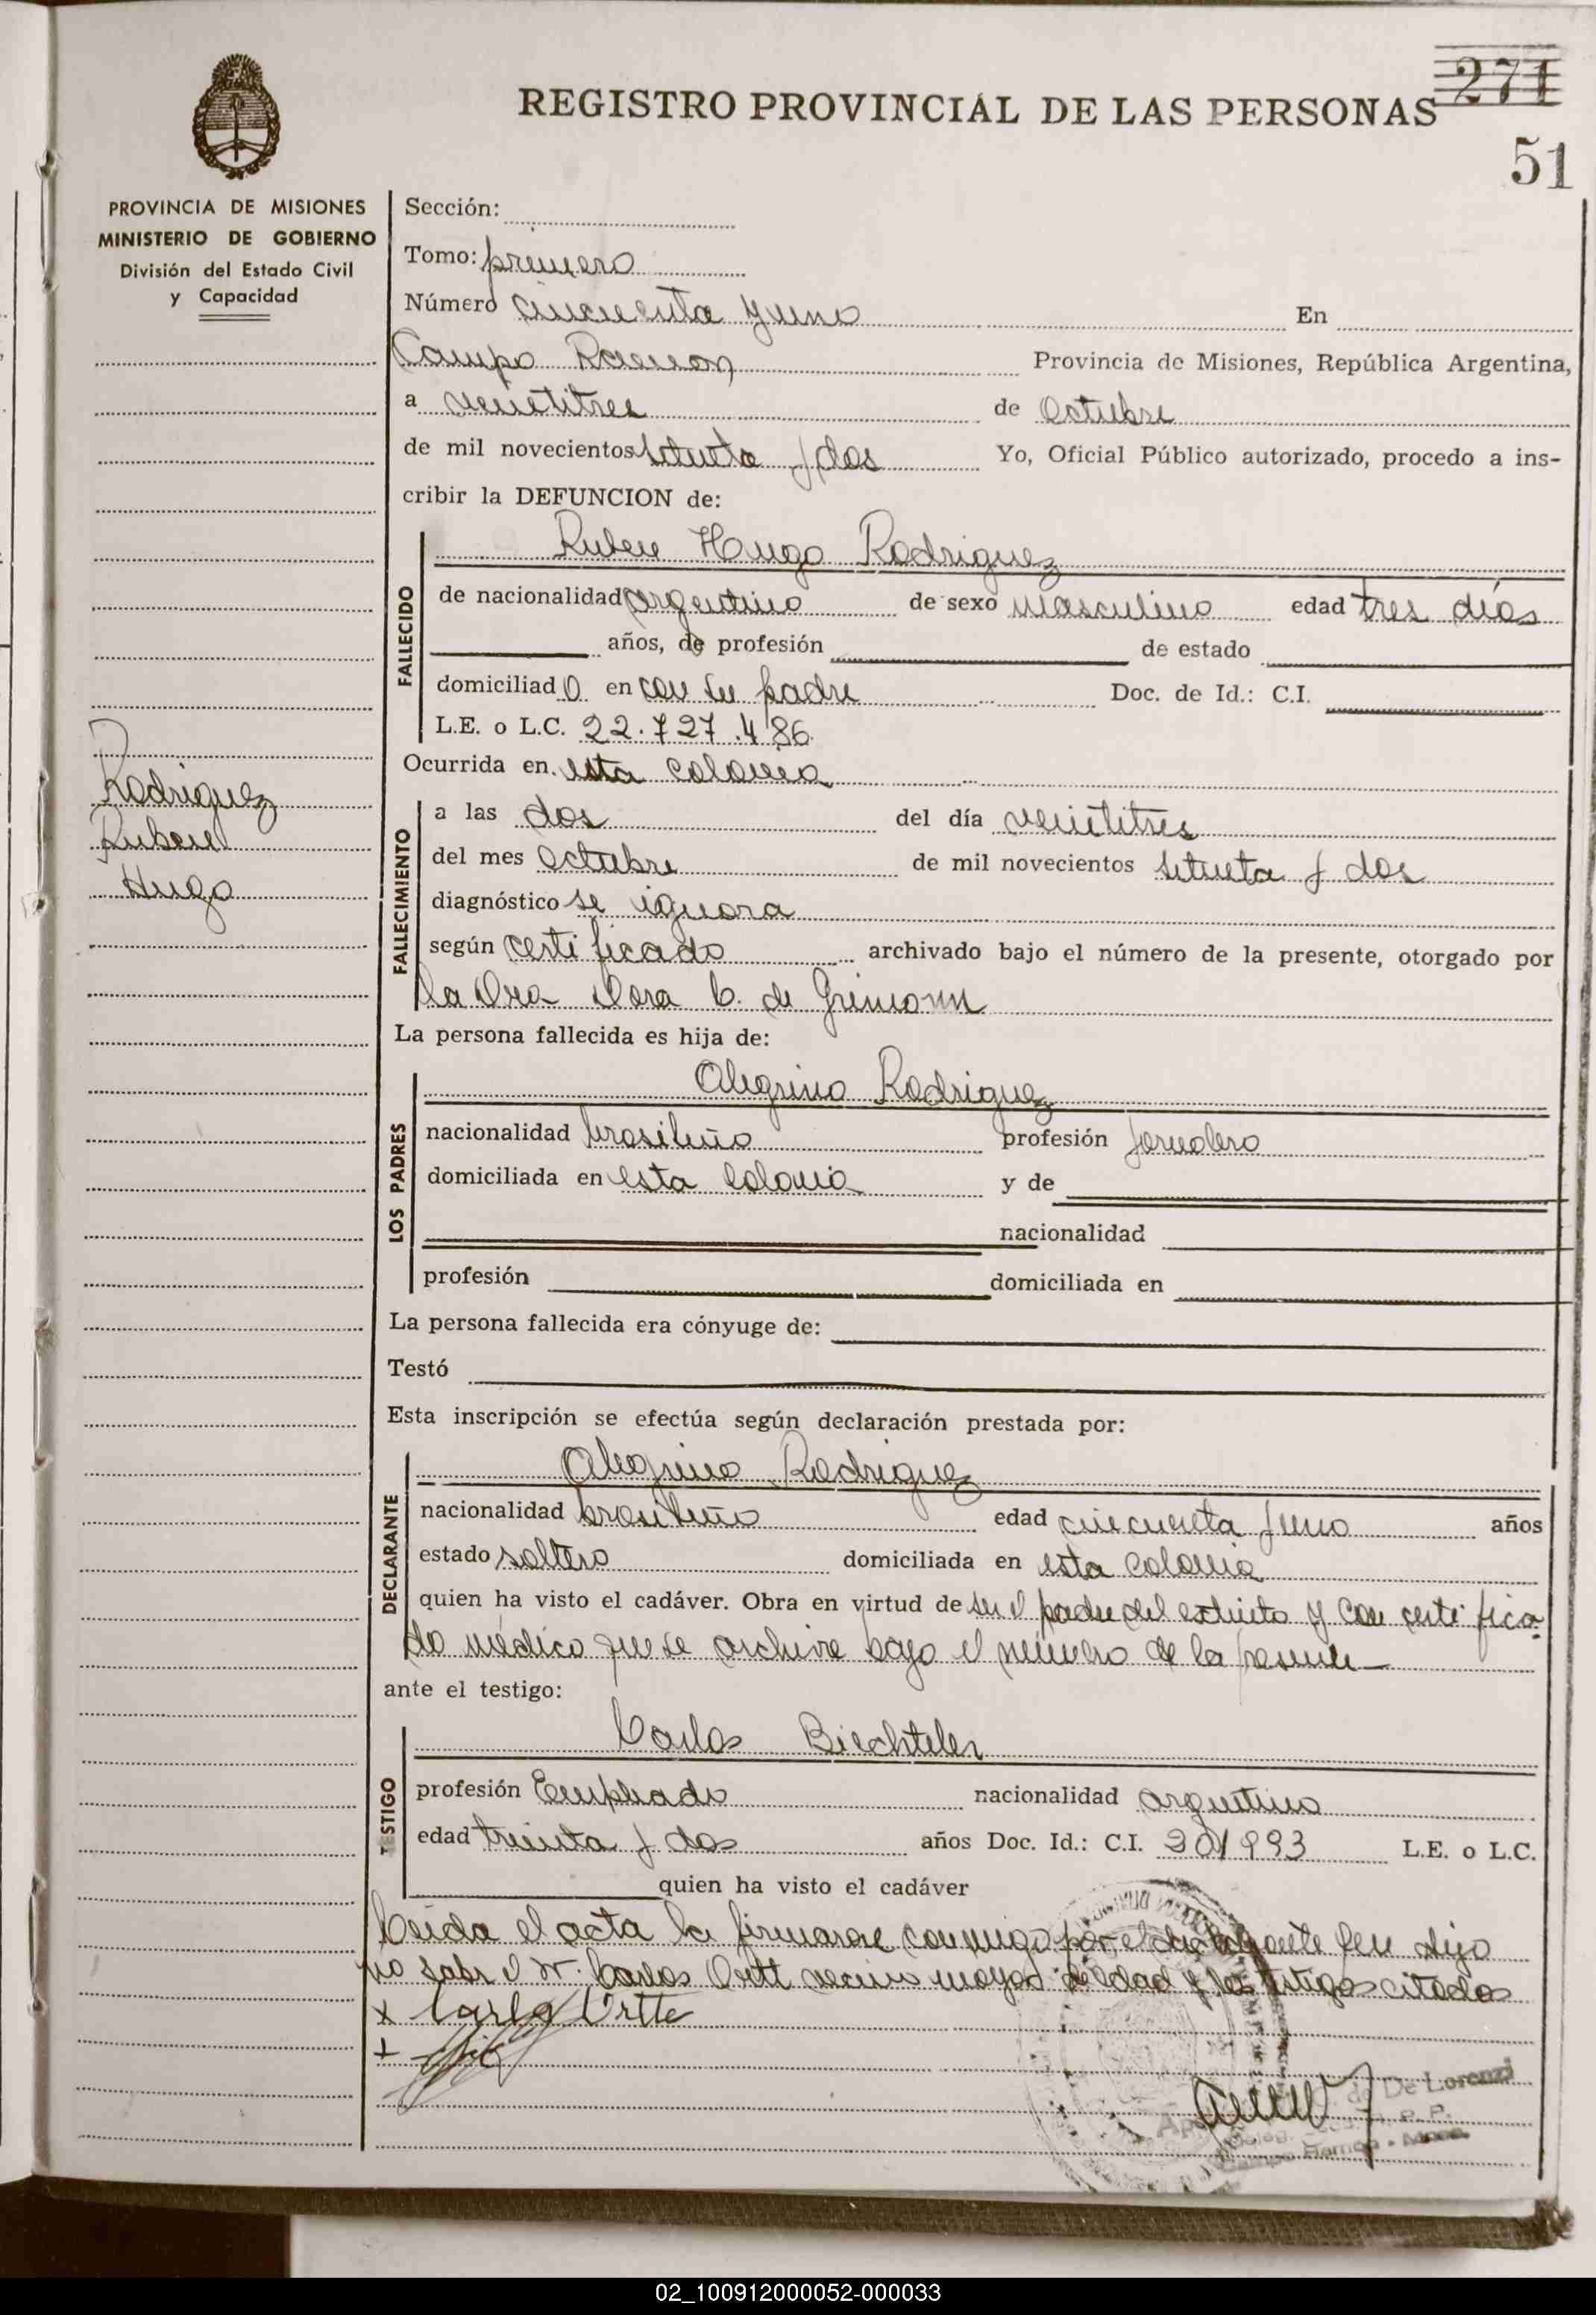 REGISTRO PROVINCIAL DE LAS PERSONAS
271
51
PROVINCIA DE MISIONES
MINISTERIO DE GOBIERNO
División del Estado Civil
y Capacidad
Rodriguez
Ruben
Hugo
Sección:
Tomo: primero
Número cincuenta y uno En
Campo Ramon Provincia de Misiones, República Argentina,
a veintitres de Octubre
de mil novecientos setenta y dos Yo, Oficial Público autorizado, procedo a ins-
cribir la DEFUNCION de:
FALLECIDO
Ruben Hugo Rodriguez
de nacionalidad argentino de sexo masculino edad tres días
años, de profesión de estado
domiciliado en con su padre Doc. de Id.: C.I.
L.E. o L.C. 22.727.486
Ocurrida en esta colonia
FALLECIMIENTO
a las dos del día veintitres
del mes Octubre de mil novecientos setenta y dos
diagnóstico se ignora
según certificado archivado bajo el número de la presente, otorgado por
la Dra Dora C. de Grimonn
La persona fallecida es hija de:
LOS PADRES
Alegrino Rodriguez
nacionalidad brasileño profesión Jornalero
domiciliada en esta Colonia y de
nacionalidad
profesión domiciliada en
La persona fallecida era cónyuge de:
Testó
Esta inscripción se efectúa según declaración prestada por:
DECLARANTE
Alegrino Rodriguez
nacionalidad brasileño edad cincuenta y uno años
estado soltero domiciliada en esta colonia
quien ha visto el cadáver. Obra en virtud de ser el padre del extinto y con certifica-
do médico que se archiva bajo el número de la presente
ante el testigo:
TESTIGO
Carlos Biechteler
profesión Empleado nacionalidad argentino
edad treinta y dos años Doc. Id.: C.I. 301993 L.E. o L.C.
quien ha visto el cadáver
Leida el acta la firmaron conmigo por el declarante que dijo
no saber el Sr. Carlos Ortt vecino mayor de edad y los testigos citados
x Carlos Ortte
x
De Lorenzi
Campo Ramon - Mnes.
02_100912000052-000033